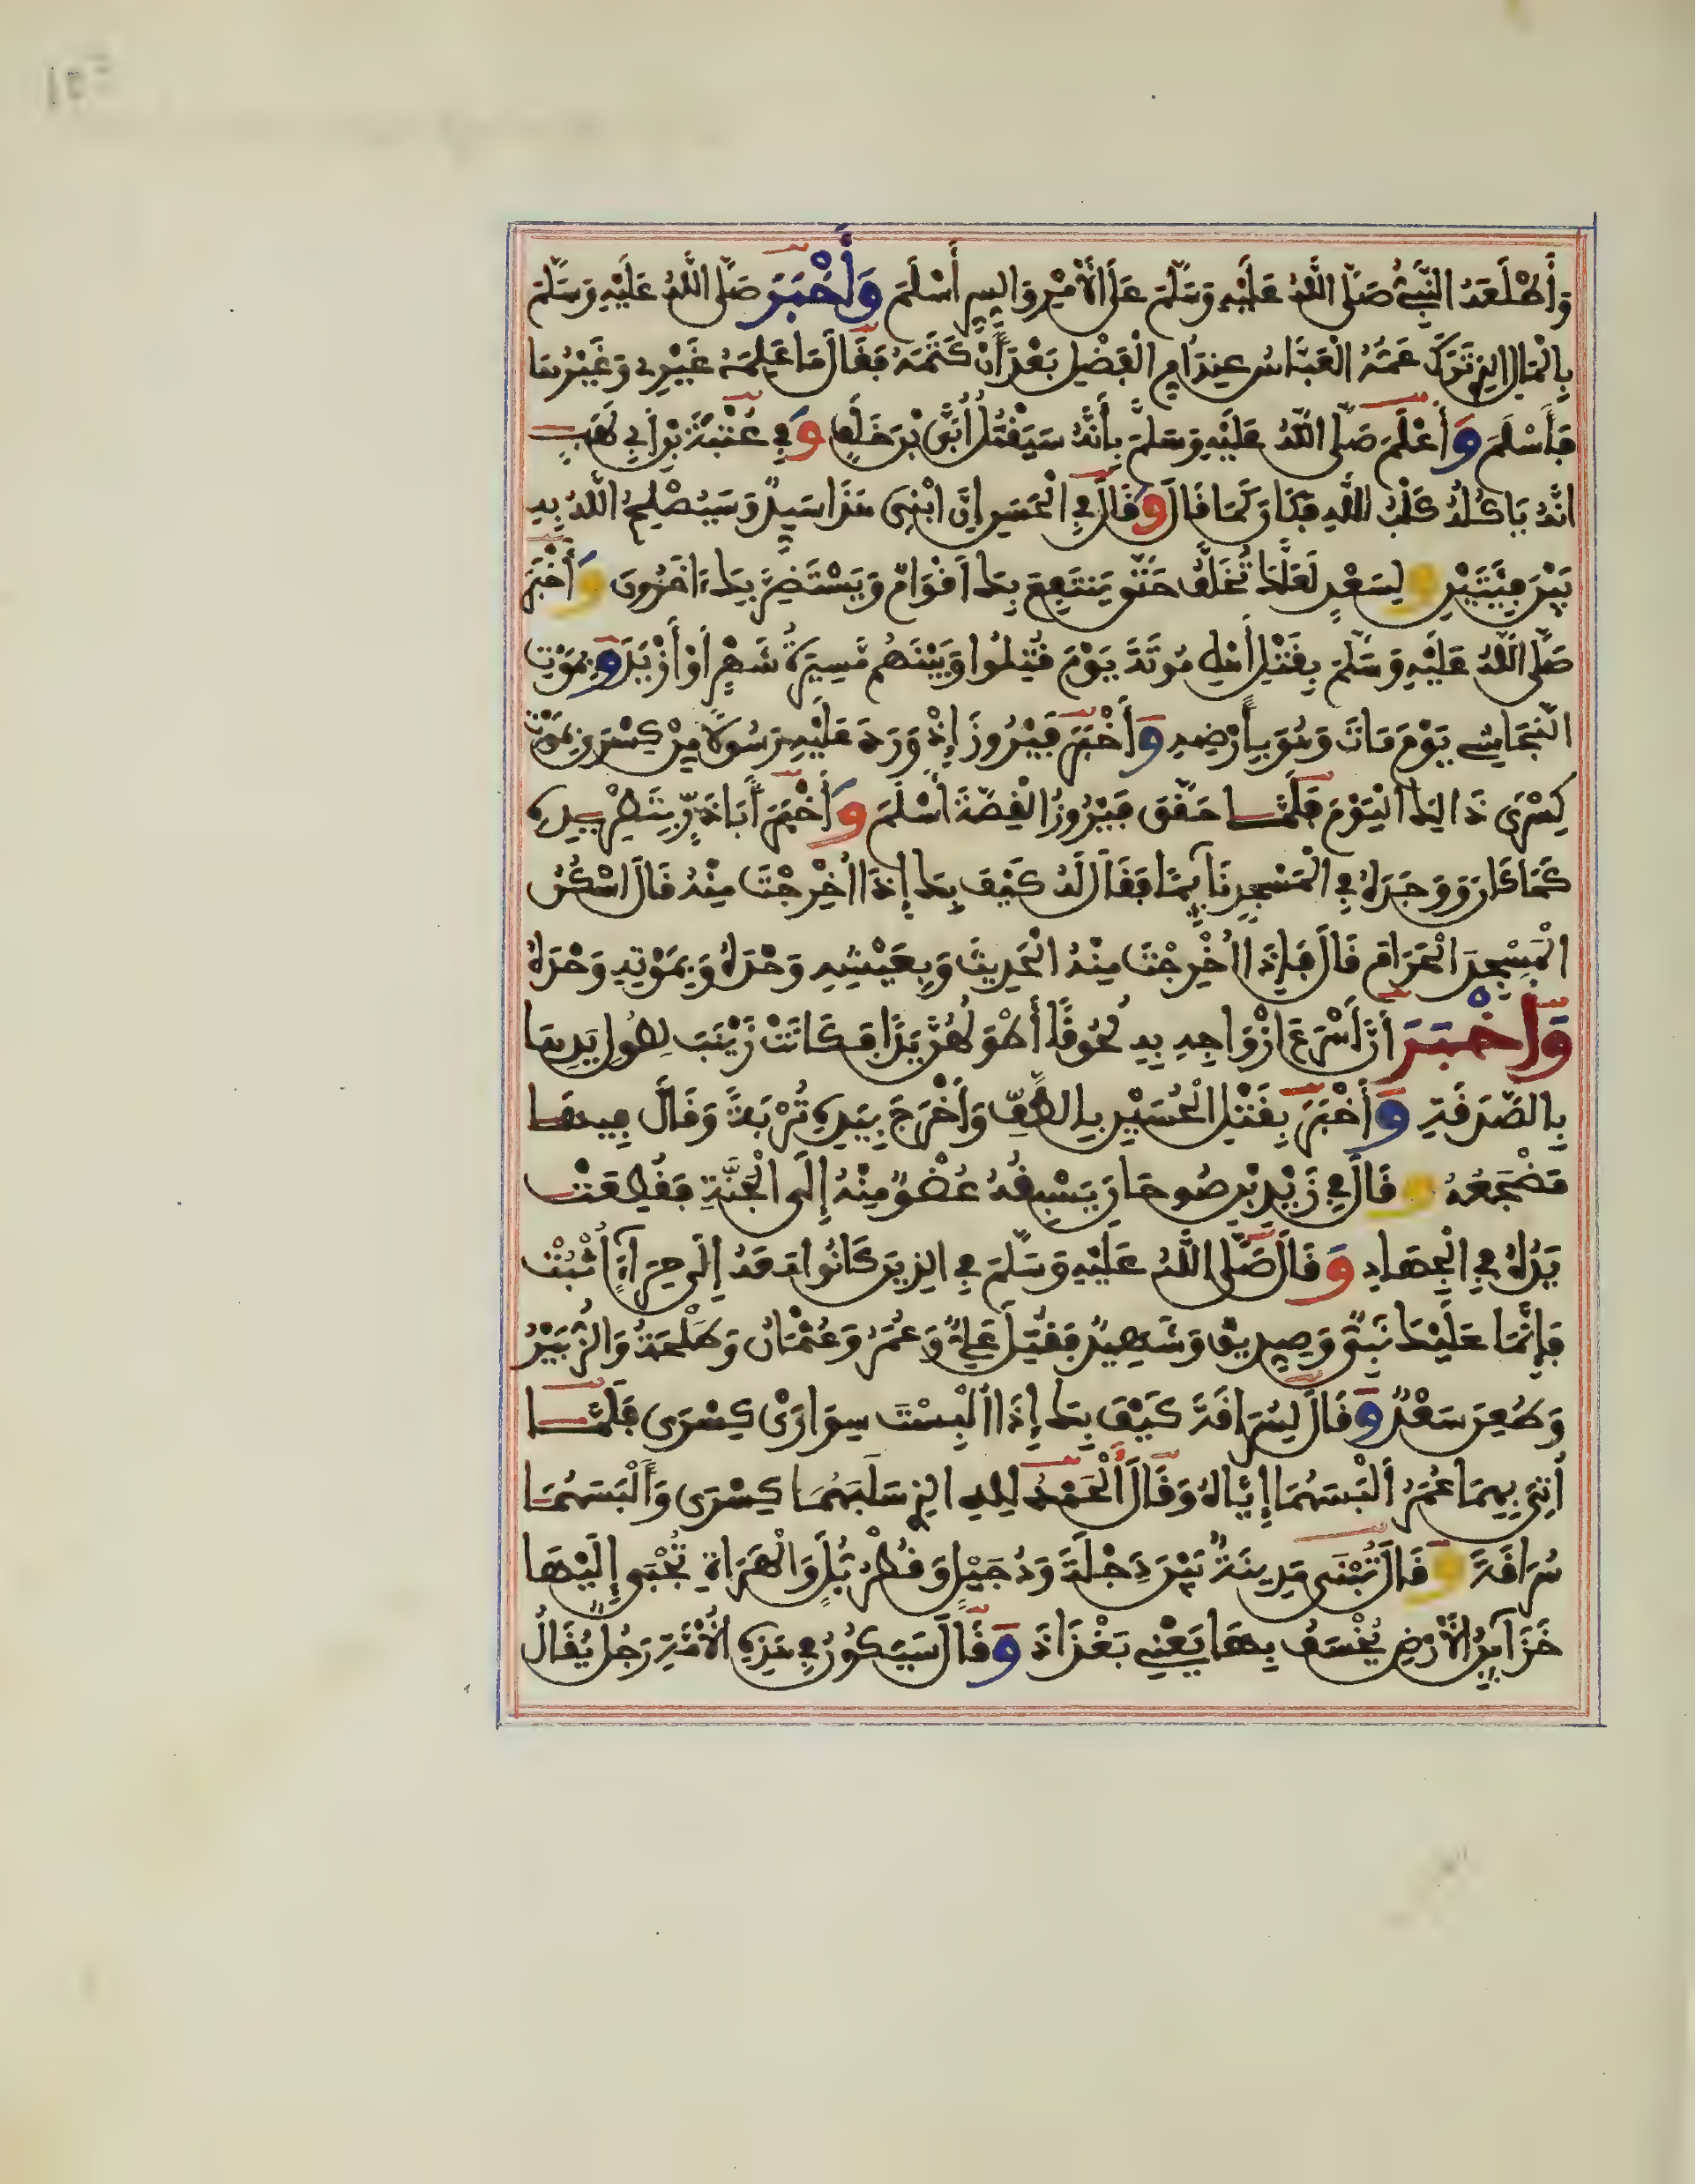 وَأَطْلَعَهُ النَّبِيُّ صَلَّى اللَّهُ عَلَيْهِ وَسَلَّمَ عَلَى الْأَمْرِ وَالسِّرِّ أَسْلَمَ وَأَخْبَرَ صَلَّى اللَّهُ عَلَيْهِ وَسَلَّمَ
بِالْمَالِ الذِي تَرَكَهُ عَمُّهُ الْعَبَّاسُ عِندَ أُمِّ الْفَضْلِ بَعْدَ أَنْ كَتَمَهُ فَقَالَ مَا عَلِمَهُ غَيْرِي وَغَيْرُهَا
فَأَسْلَمَ وَأَعْلَمَ صَلَّى اللَّهُ عَلَيْهِ وَسَلَّمَ بِأَنَّهُ سَيَقْتُلُ أُبَيَّ بْنَ خَلَفٍ وَفِي عُتْبَةَ بْنِ أَبِي لَهَبٍ
انَّهُ يَاكُلُهُ كَلْبُ اللَّهِ فَكَانَ كَمَا قَالَ وَقَالَ فِي الْحَسَنِ إِنَّ ابْنِي هَذَا سَيِّدٌ وَسَيُصْلِحُ اللَّهُ بِهِ
بَيْنَ فِئَتَيْنِ وَلِسَعْدٍ لَعَلَّكَ تُخَلَّفُ حَتَّى يَنتَفِعَ بِكَ أَقْوَامٌ وَيَسْتَضِرَّ بِكَ ءَاخَرُونَ وَأَخْبَرَ
صَلَّى اللَّهُ عَلَيْهِ وَسَلَّمَ بِقَتْلِ أَهْلِ مُوتَةَ يَوْمَ قُتِلُوا وَبَيْنَهُم مَّسِيرَةُ شَهْرٍ أَوْ أَزْيَدَ وَبِمَوْتِ
النَّجَاشِي يَوْمَ مَاتَ وَهُوَ بِأَرْضِهِ وَأَخْبَرَ فَيْرُوزَ إِذْ وَرَدَ عَلَيْهِ رَسُولًا مِنْ كِسْرَى بِمَوْتِ
كِسْرَى ذَالِكَ الْيَوْمَ فَلَمَّا حَقَّقَ فَيْرُوزُ الْقِصَّةَ أَسْلَمَ وَأَخْبَرَ أَبَا ذَرٍّ بِتَطْرِيدِهِ
كَمَا كَانَ وَوَجَدَهُ فِي الْمَسْجِدِ نَآئِمًا فَقَالَ لَهُ كَيْفَ بِكَ إِذَا أُخْرِجْتَ مِنْهُ قَالَ اسْكُنُ
الْمَسْجِدَ الْحَرَامَ قَالَ فَإِذَا أُخْرِجْتَ مِنْهُ الْحَدِيثَ وَبِعَيْشِهِ وَحْدَهُ وَبِمَوْتِهِ وَحْدَهُ
وَأَخْبَرَ أَنَّ أَسْرَعَ أَزْوَاجِهِ بِهِ لُحُوقًا أَطْوَلُهُنَّ يَدًا فَكَانَتْ زَيْنَبَ لِطُولِ يَدِهَا
بِالصَّدَقَةِ وَأَخْبَرَ بِقَتْلِ الْحُسَيْنِ بِالطَّفِّ وَأَخْرَجَ بِيَدِهِ تُرْبَةً وَقَالَ فِيهَا
مَضْجَعُهُ وَقَالَ فِي زَيْدِ بْنِ صُوحَانَ يَسْبِقُهُ عُضْوٌ مِنْهُ إِلَى الْجَنَّةِ فَقُطِعَتْ
يَدُهُ فِي الْجِهَادِ وَقَالَ صَلَّى اللَّهُ عَلَيْهِ وَسَلَّمَ فِي الذِينَ كَانُوا مَعَهُ إِلَى حِرَآءٍ أُثْبُتْ
فَإِنَّمَا عَلَيْكَ نَبِيٌّ وَصِدِّيقٌ وَشَهِيدٌ فَقُتِلَ عَلِيٌّ وَعُمَرُ وَعُثْمَانُ وَطَلْحَةُ وَالزُّبَيْرُ
وَطُعِنَ سَعْدٌ وَقَالَ لِسُرَاقَةَ كَيْفَ بِكَ إِذَا أُلْبِسْتَ سِوَارَيْ كِسْرَى فَلَمَّا
أُتِيَ بِهِمَا عُمَرُ أَلْبَسَهُمَا إِيَّاهُ وَقَالَ الْحَمْدُ لِلهِ الذِي سَلَبَهُمَا كِسْرَى وَأَلْبَسَهُمَا
سُرَاقَةَ وَقَالَ تُبْنَى مَدِينَةٌ بَيْنَ دِجْلَةَ وَدُجَيْلٍ وَقُطْرُبُلَ وَالصَّرَاةِ تُجْبَى إِلَيْهَا
خَزَآئِنُ الْأَرْضِ يُخْسَفُ بِهَا يَعْنِي بَغْدَاذَ وَقَالَ سَيَكُونُ فِي هَذِهِ الْأُمَّةِ رَجُلٌ يُقَالُ